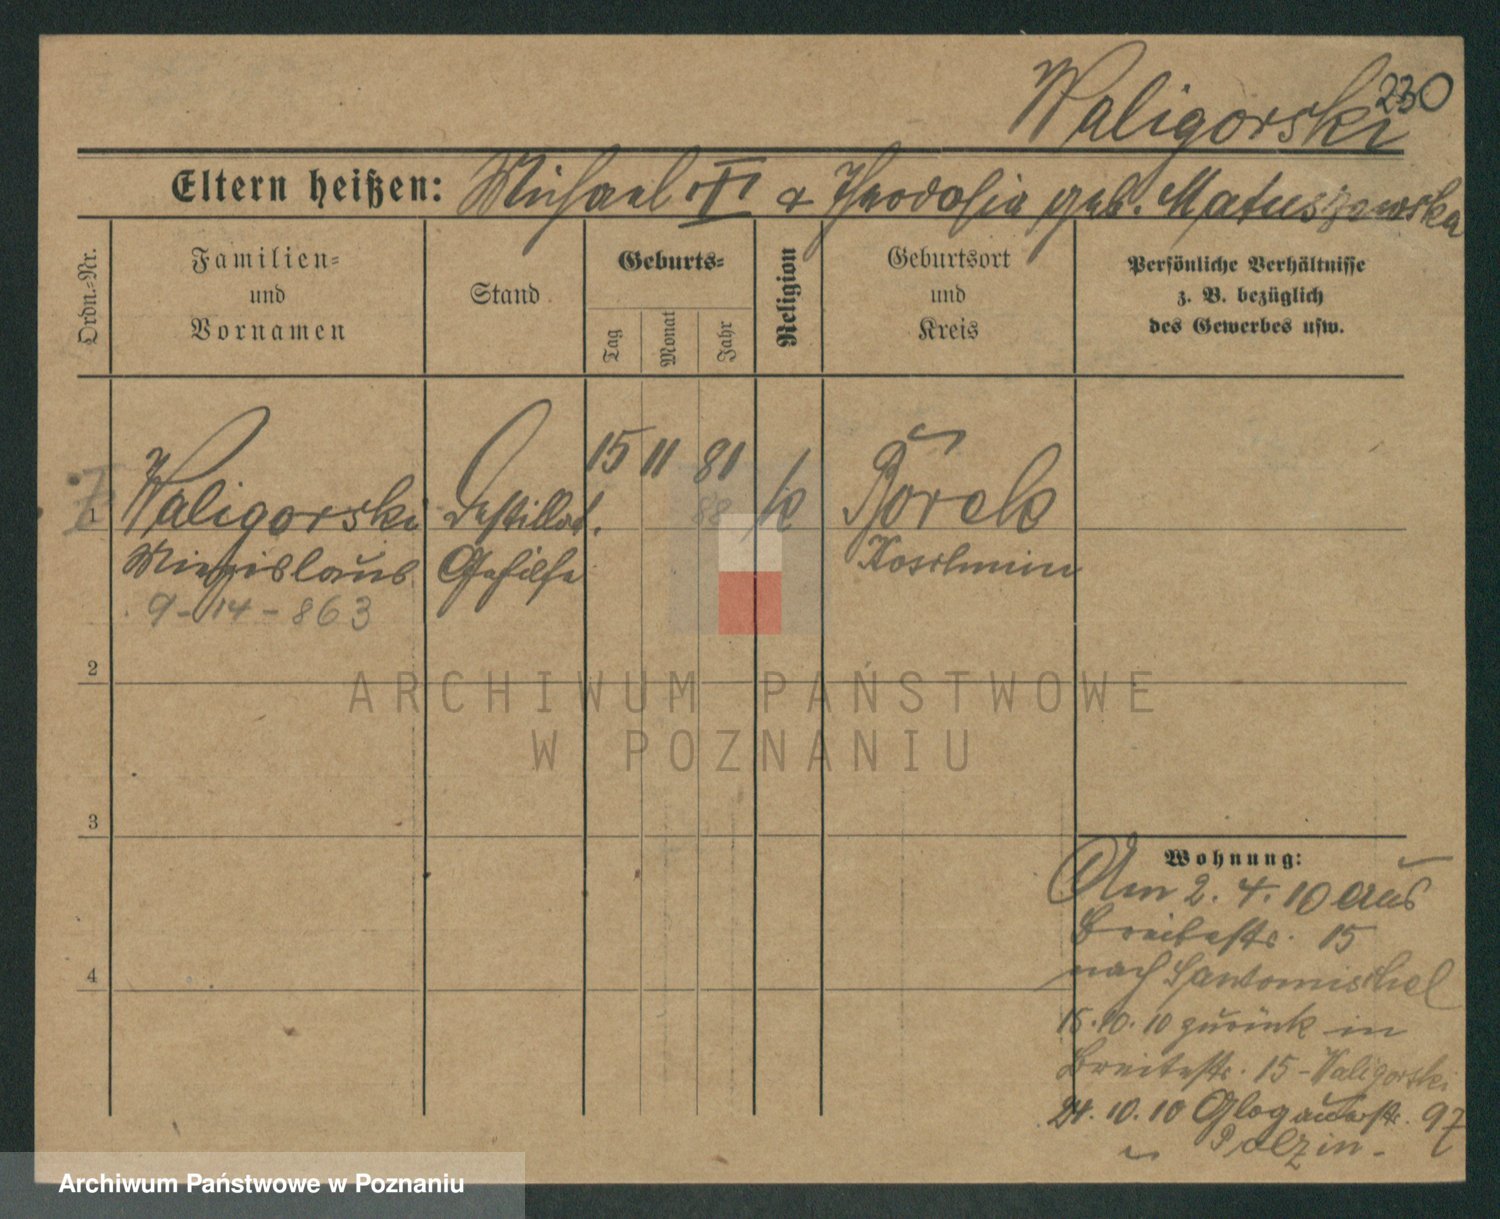 230
Waligorski
Eltern heißen: Michael & Theodosia geb. Matuszewska
Ordn.-Nr.
Familien-
und
Vornamen
Stand
Geburts-
Tag
Monat
Jahr
Religion
Geburtsort
und
Kreis
Persönliche Verhältnisse
z. B. bezüglich
des Gewerbes usw.
1
Waligorski
Destillat.
15 11 81
88
k
Borek
Mieczislaus
Gehilfe
Koschmin
9-14-863
2
3
4
ARCHIWUM PAŃSTWOWE
W POZNANIU
Wohnung:
Am 2. 4. 10 aus
Breitestr. 15
nach Santomischel
15. 10. 10 zurück in
Breitestr. 15 - Waligorski
24. 10. 10 Glogauerstr. 97
Polzin.
Archiwum Państwowe w Poznaniu